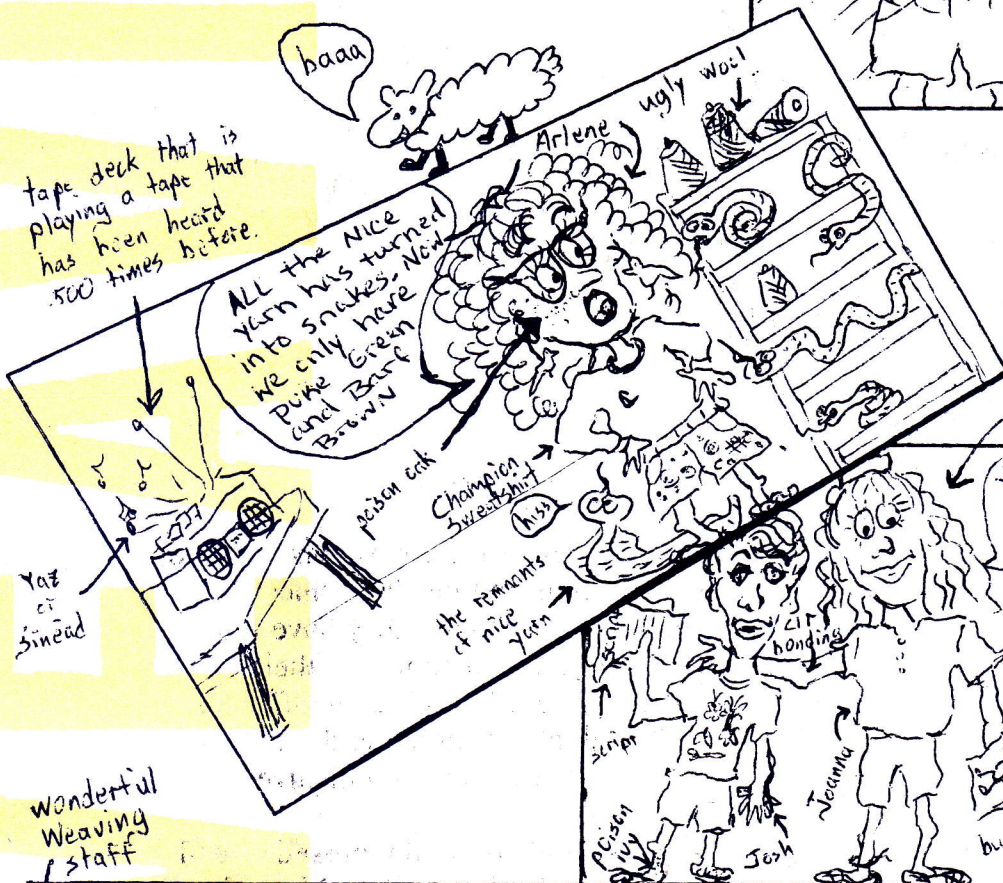 baaa
ugly wool
Arlene
tape deck that is
playing a tape that
has been heard
500 times before.
ALL the NICE
yarn has turned
into snakes. Now
we only have
Puke Green
and Barf
BrowN
poison oak
Champion
Sweatshirt
hiss
the remnants
of nice
yarn
Yaz
or
Sinead
wonderful
Weaving
staff
script
bonding
poison
ivy
Josh
Joanna